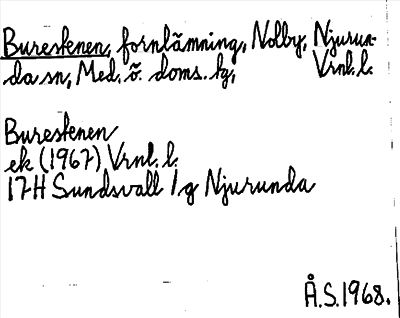 Burestenen, fornlämning, Nolby, Njurun-
da sn, Med. ö. doms. tg, Vrnl. l.
Burestenen
ek (1967) Vrnl. l.
17H Sundsvall 1 g Njurunda
Å.S. 1968.